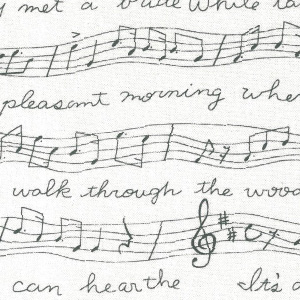 met a
while
pleasant morning when
walk through the wood
can hear the
It's a